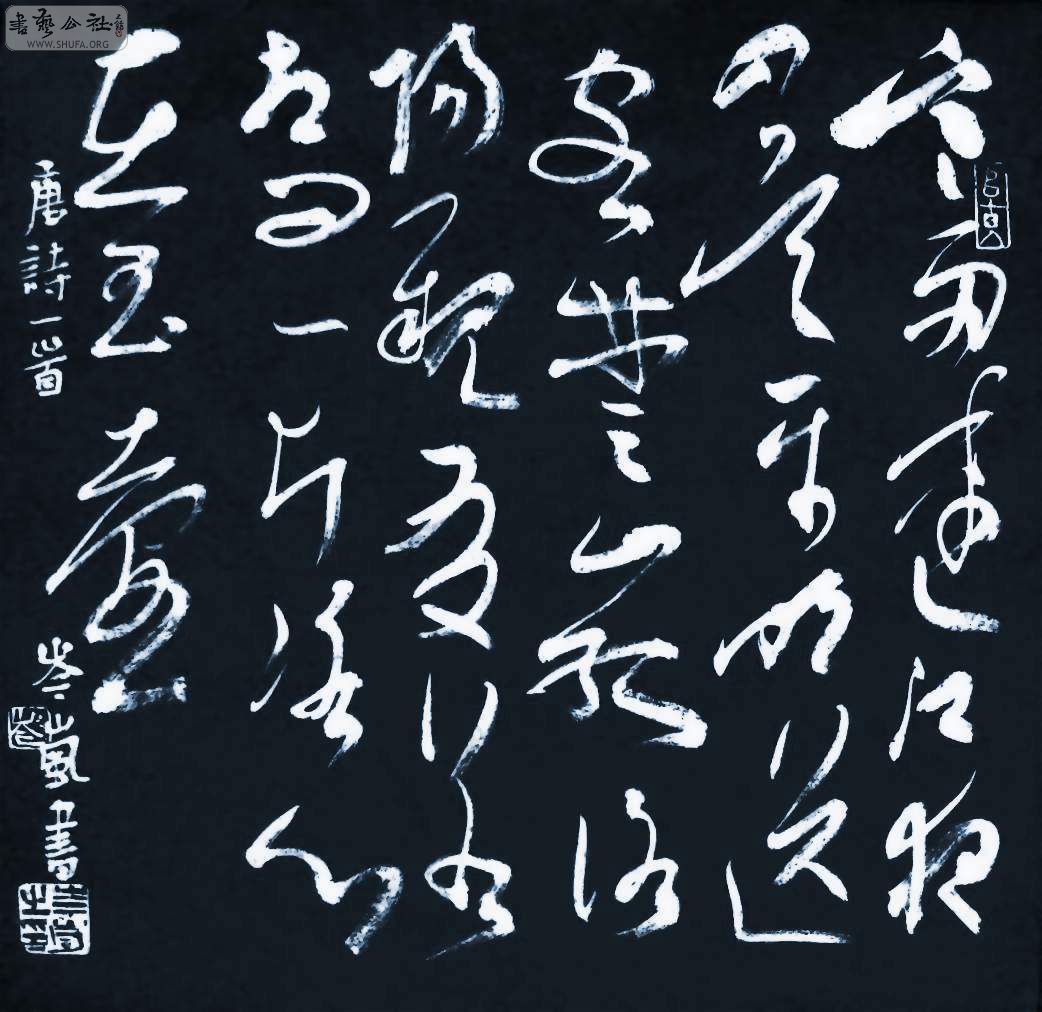 書藝公社
WWW.SHUFA.ORG
寒雨連江夜
吳平明送
客楚山孤洛
陽親友
相問一片冰心
在玉壺
唐詩一首 岑嵐書